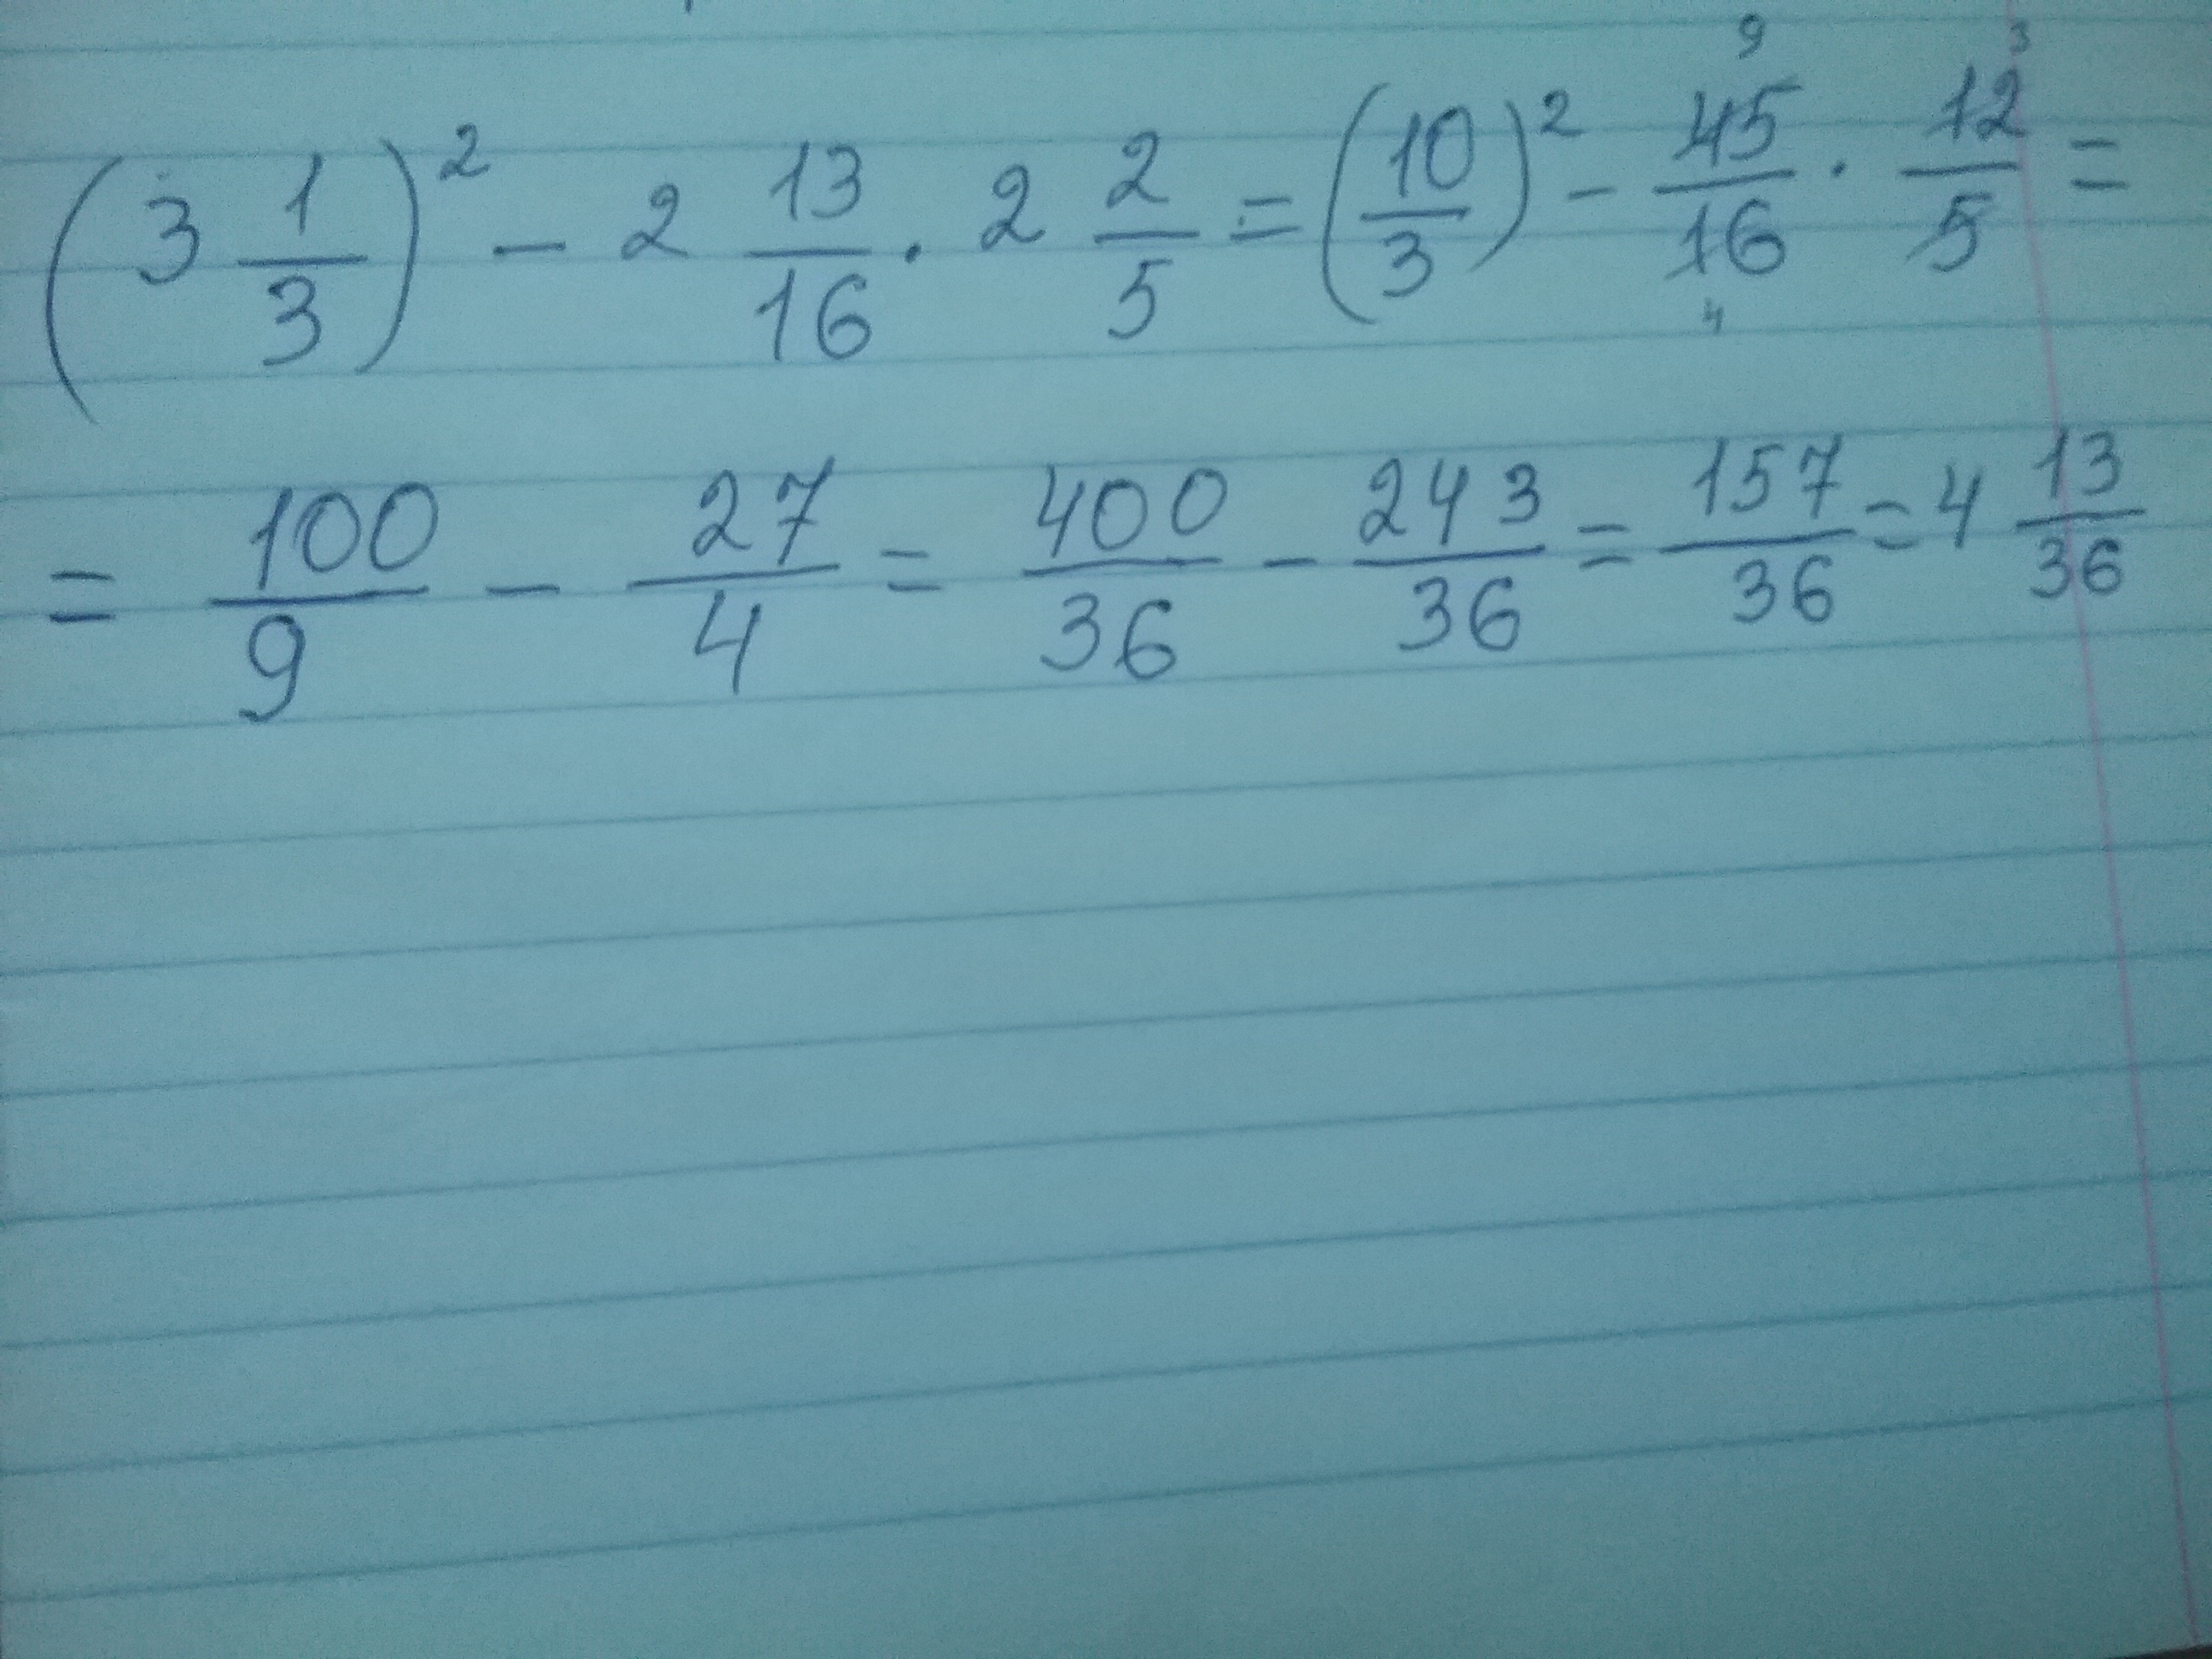 (3 1/3)² - 2 13/16 · 2 2/5 = (10/3)² - 45/16 · 12/5 =
9 3
4
= 100/9 - 27/4 = 400/36 - 243/36 = 157/36 = 4 13/36